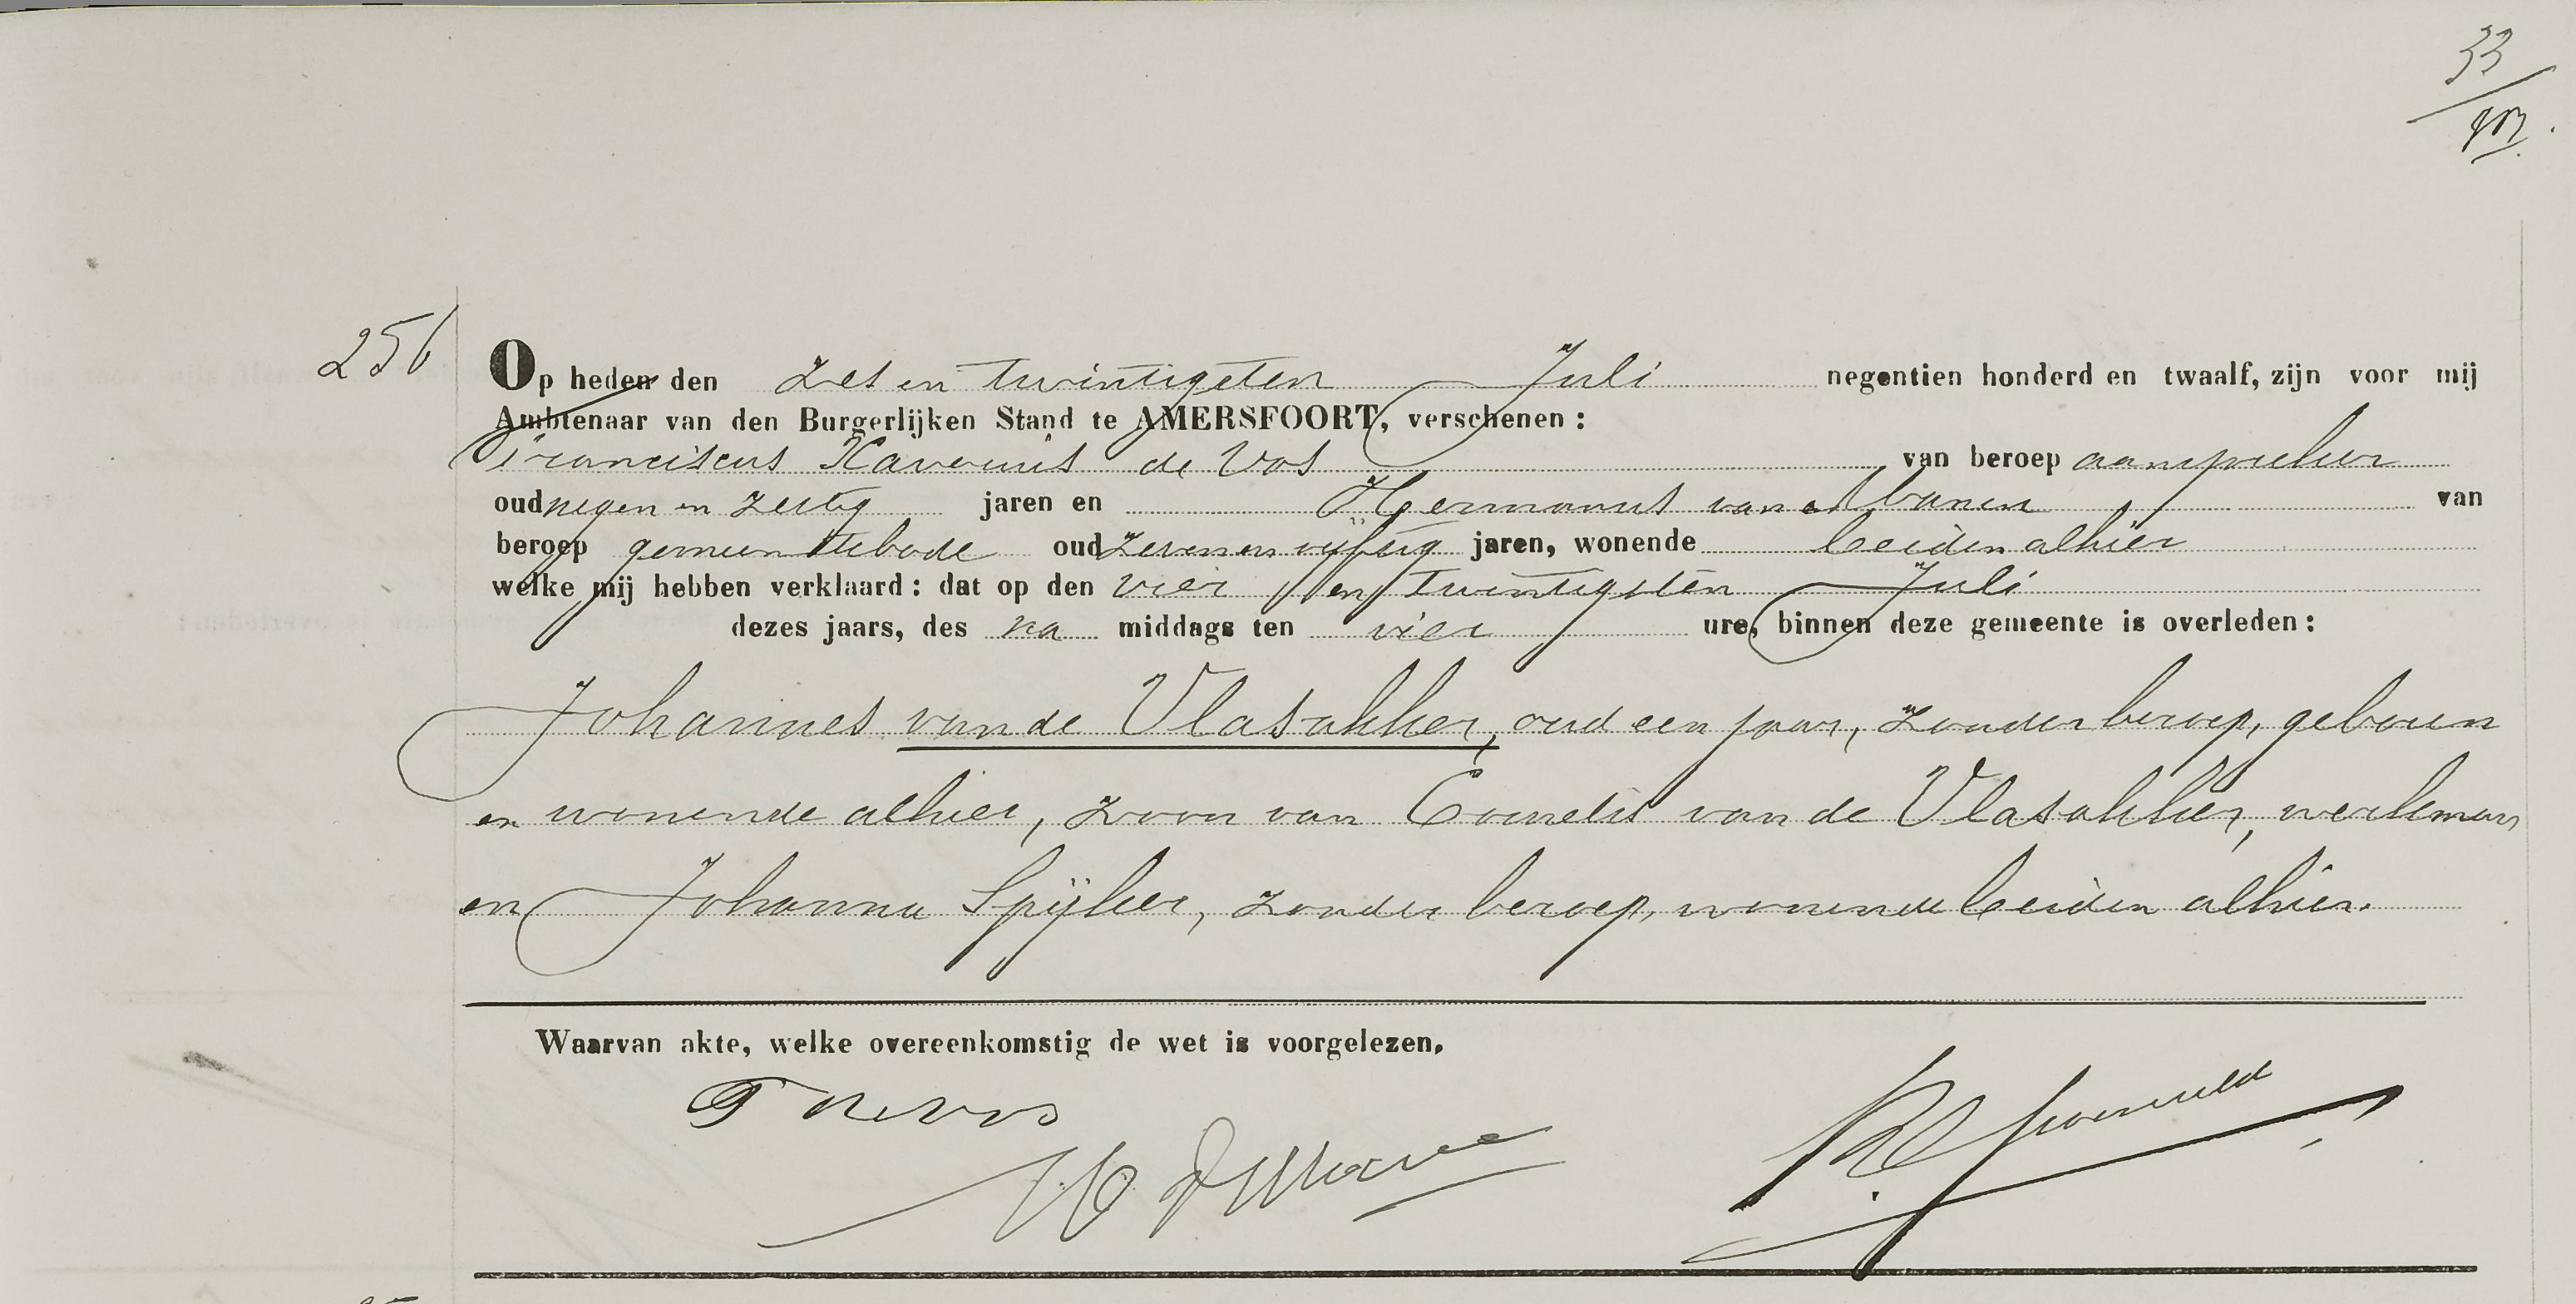 33
256
Op heden den zes en twintigsten Juli negentien honderd en twaalf, zijn voor mij
Ambtenaar van den Burgerlijken Stand te AMERSFOORT, verschenen:
Franciscus Xaverius de Vos van beroep aanspreker
oud negen en zestig jaren en Hermanus van van
beroep gemeentebode oud zeven en vijftig jaren, wonende beiden alhier
welke mij hebben verklaard: dat op den vier en twintigsten Juli
dezes jaars, des na middags ten vier ure, binnen deze gemeente is overleden:
Johannes van de Vlasakker, oud een jaar, zonder beroep, geboren
en wonende alhier, zoon van Cornelis van de Vlasakker, werkman
en Johanna Spijker, zonder beroep, wonende beiden alhier.
Waarvan akte, welke overeenkomstig de wet is voorgelezen.
F de Vos